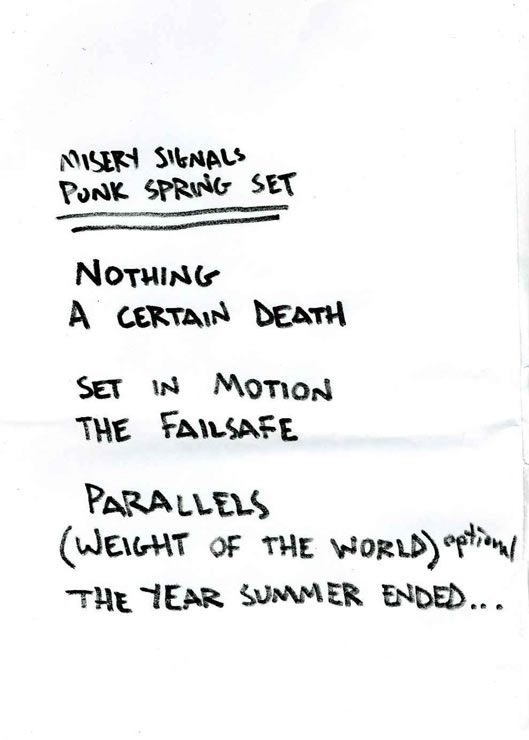 MISERY SIGNALS
PUNK SPRING SET
NOTHING
A CERTAIN DEATH
SET IN MOTION
THE FAILSAFE
PARALLELS
(WEIGHT OF THE WORLD) optional
THE YEAR SUMMER ENDED...